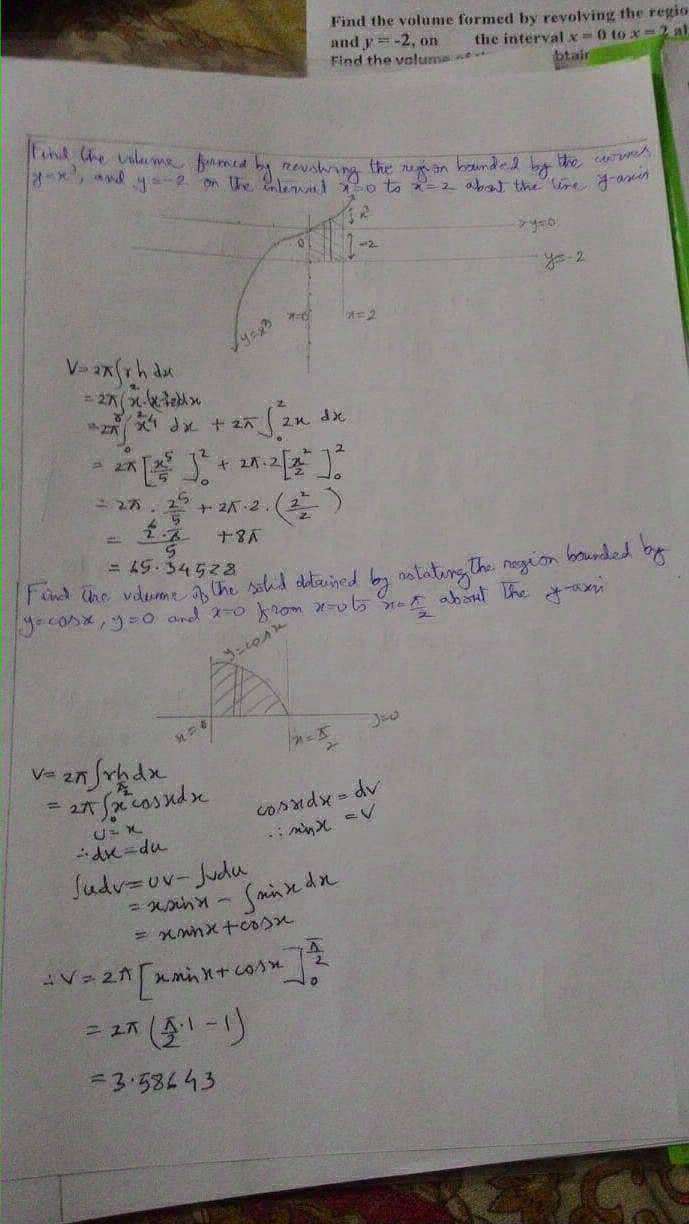 Find the volume formed by revolving the regio
and y = -2, on the interval x = 0 to x = 2 a
Find the volume
Find the volume formed by revolving the region bounded by the curves
y=x³, and y=-2 on the interval x=0 to x=2 about the line y-axis
x³
y=0
0
-2
y=-2
x=0
x=2
y=x³
V= 2π∫rh dx
= 2π∫₀² x·(x³+2)dx
= 2π∫₀² x⁴ dx + 2π∫₀² 2x dx
= 2π [x⁵/5]₀² + 2π·2[x²/2]₀²
= 2π · 2⁵/5 + 2π·2·(2²/2)
= 2⁶·π/5 + 8π
= 65.34528
Find the volume of the solid obtained by rotating the region bounded by
y=cosx, y=0 and x=0 from x=0 to x=π/2 about the y-axis
y=cosx
x=0
y=0
x=π/2
V= 2π∫rh dx
= 2π∫₀^(π/2) x cosxdx
u=x
cosxdx=dv
∴dx=du
∴sinx=v
∫udv=uv-∫vdu
= xsinx - ∫sinx dx
= xsinx+cosx
∴V = 2π[xsinx+cosx]₀^(π/2)
= 2π(π/2·1-1)
= 3.58643